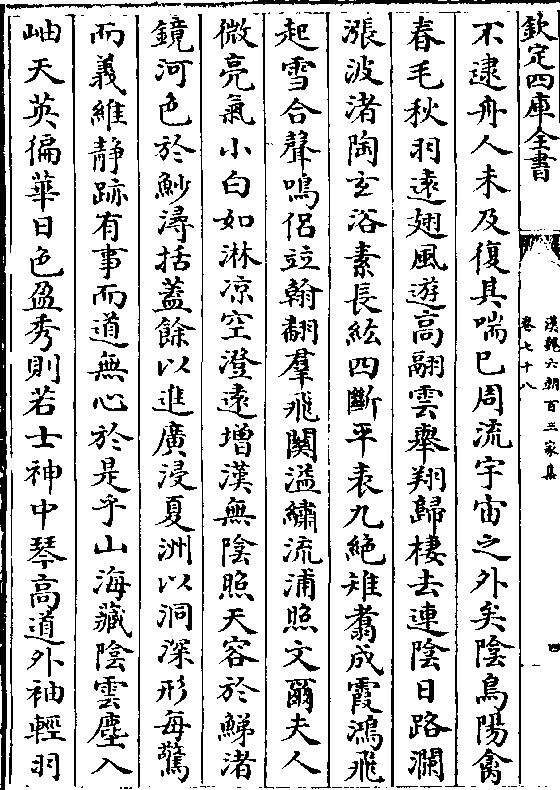 欽定四庫全書
漢魏六朝百三家集
卷七十八
四
不逮舟人未及復其喘已周流宇宙之外矣陰鳥陽禽
春毛秋羽遠翅風遊髙翮雲舉翔歸棲去連隂日路瀾
漲波渚陶玄浴素長紘四斷平表九絶雉翥成霞鴻飛
起雪合聲鳴侣並翰翻羣飛關溢繡流浦照文爾夫人
微亮氣小白如淋凉空澄遠增漢無陰照天容於鮷渚
鏡河色於魦潯括蓋餘以進廣浸夏洲以洞深形每驚
而義維靜跡有事而道無心於是乎山海藏陰雲塵入
岫天英徧華日色盈秀則若士神中琴髙道外袖輕羽